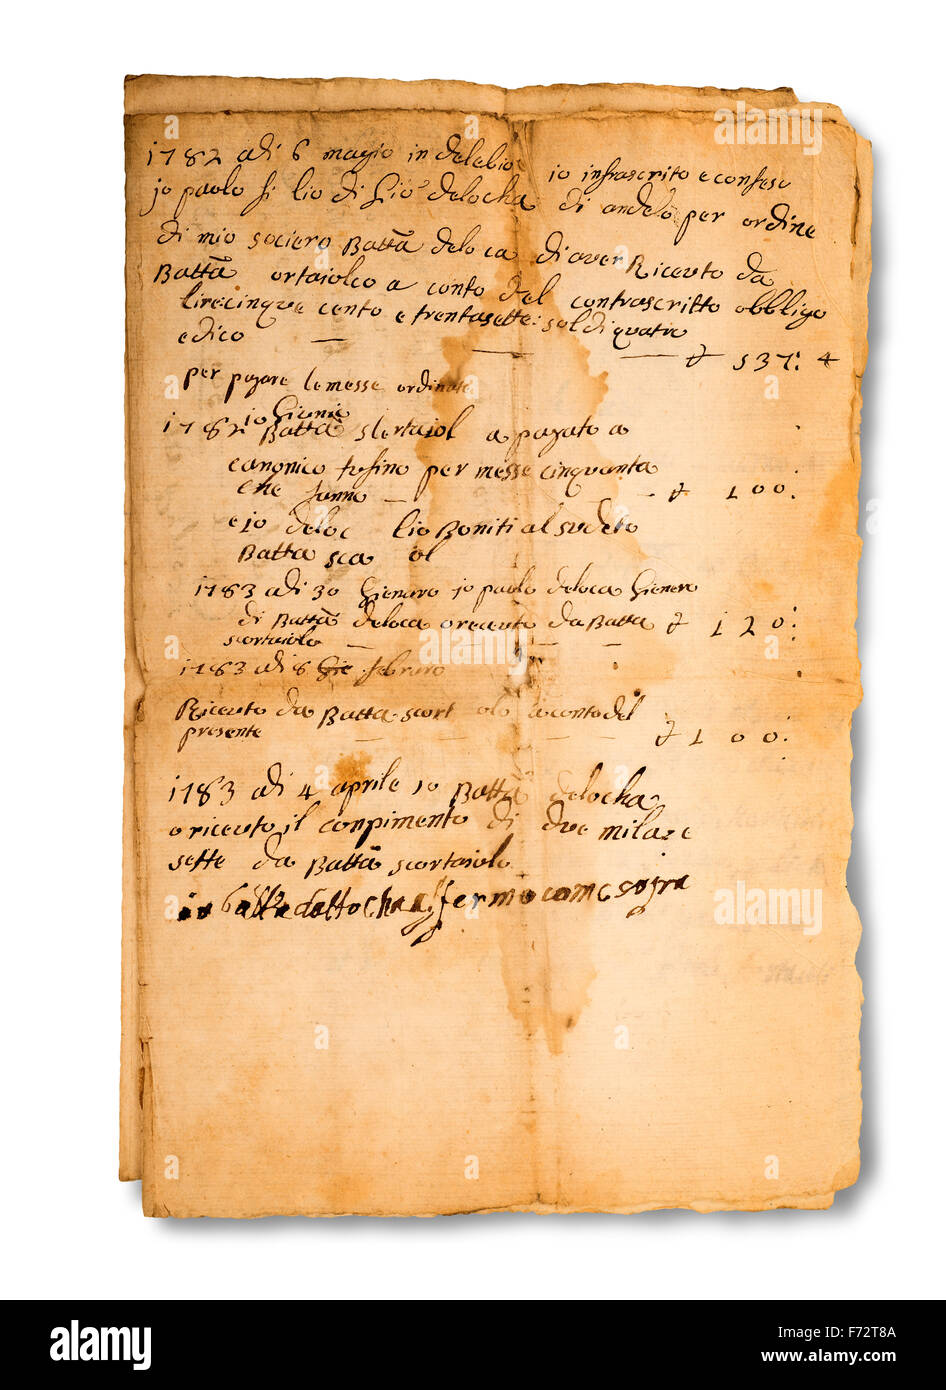 1782 adi 6 magio in delebio io infrascrito e confeso
jo paolo fi lio di Gio delocha di andelo per ordine
di mio sociero Batta deloca di aver Riceuto da
Batta ortaiolco a conto del contrascritto obbligo
lirecinque cento e trentasette: soldi quatro
edico — — — 537: 4
per pagare lemesse ordinate
io Gienio
1782 Batta a pagato a
canonico per messe cinquanta
che — — 100:
e io deloc al sudeto
Batta
1783 adi 30 Gienaro jo paolo deloca Gienero
di Batta deloca o receuto da Batta 120:
scortaiolo — — —
1783 adi 8 Gie febraro
Riceuto da Batta scort olo aconto del
presente — — — 100:
1783 adi 4 aprile io Batta delocha
o riceuto il conpimento di due mila e
sette da Batta scortaiolo
io batta dellocha affermo come sopra
alamy
Image ID: F72T8A
www.alamy.com